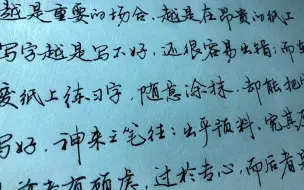 越是重要的场合，越是在昂贵的纸上
写字越是写不好，还很容易出错；而在
废纸上练习字，随意涂抹，却能把
写好，神来之笔往往出乎预料，究其原
有顾虑，过于专心，而后者